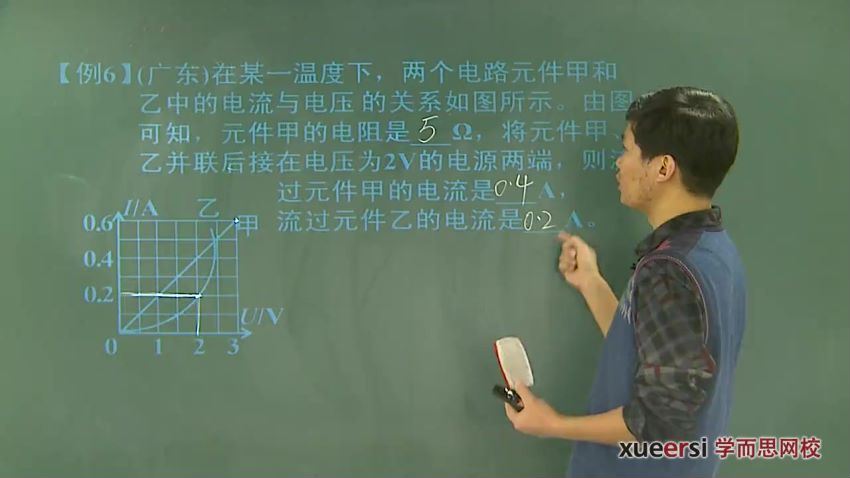 【例6】(广东)在某一温度下，两个电路元件甲和
乙中的电流与电压的关系如图所示。由图
可知，元件甲的电阻是5Ω，将元件甲、
乙并联后接在电压为2V的电源两端，则
过元件甲的电流是0.4A，
流过元件乙的电流是0.2A。
I/A
乙
甲
0.6
0.4
0.2
U/V
0 1 2 3
xueersi 学而思网校